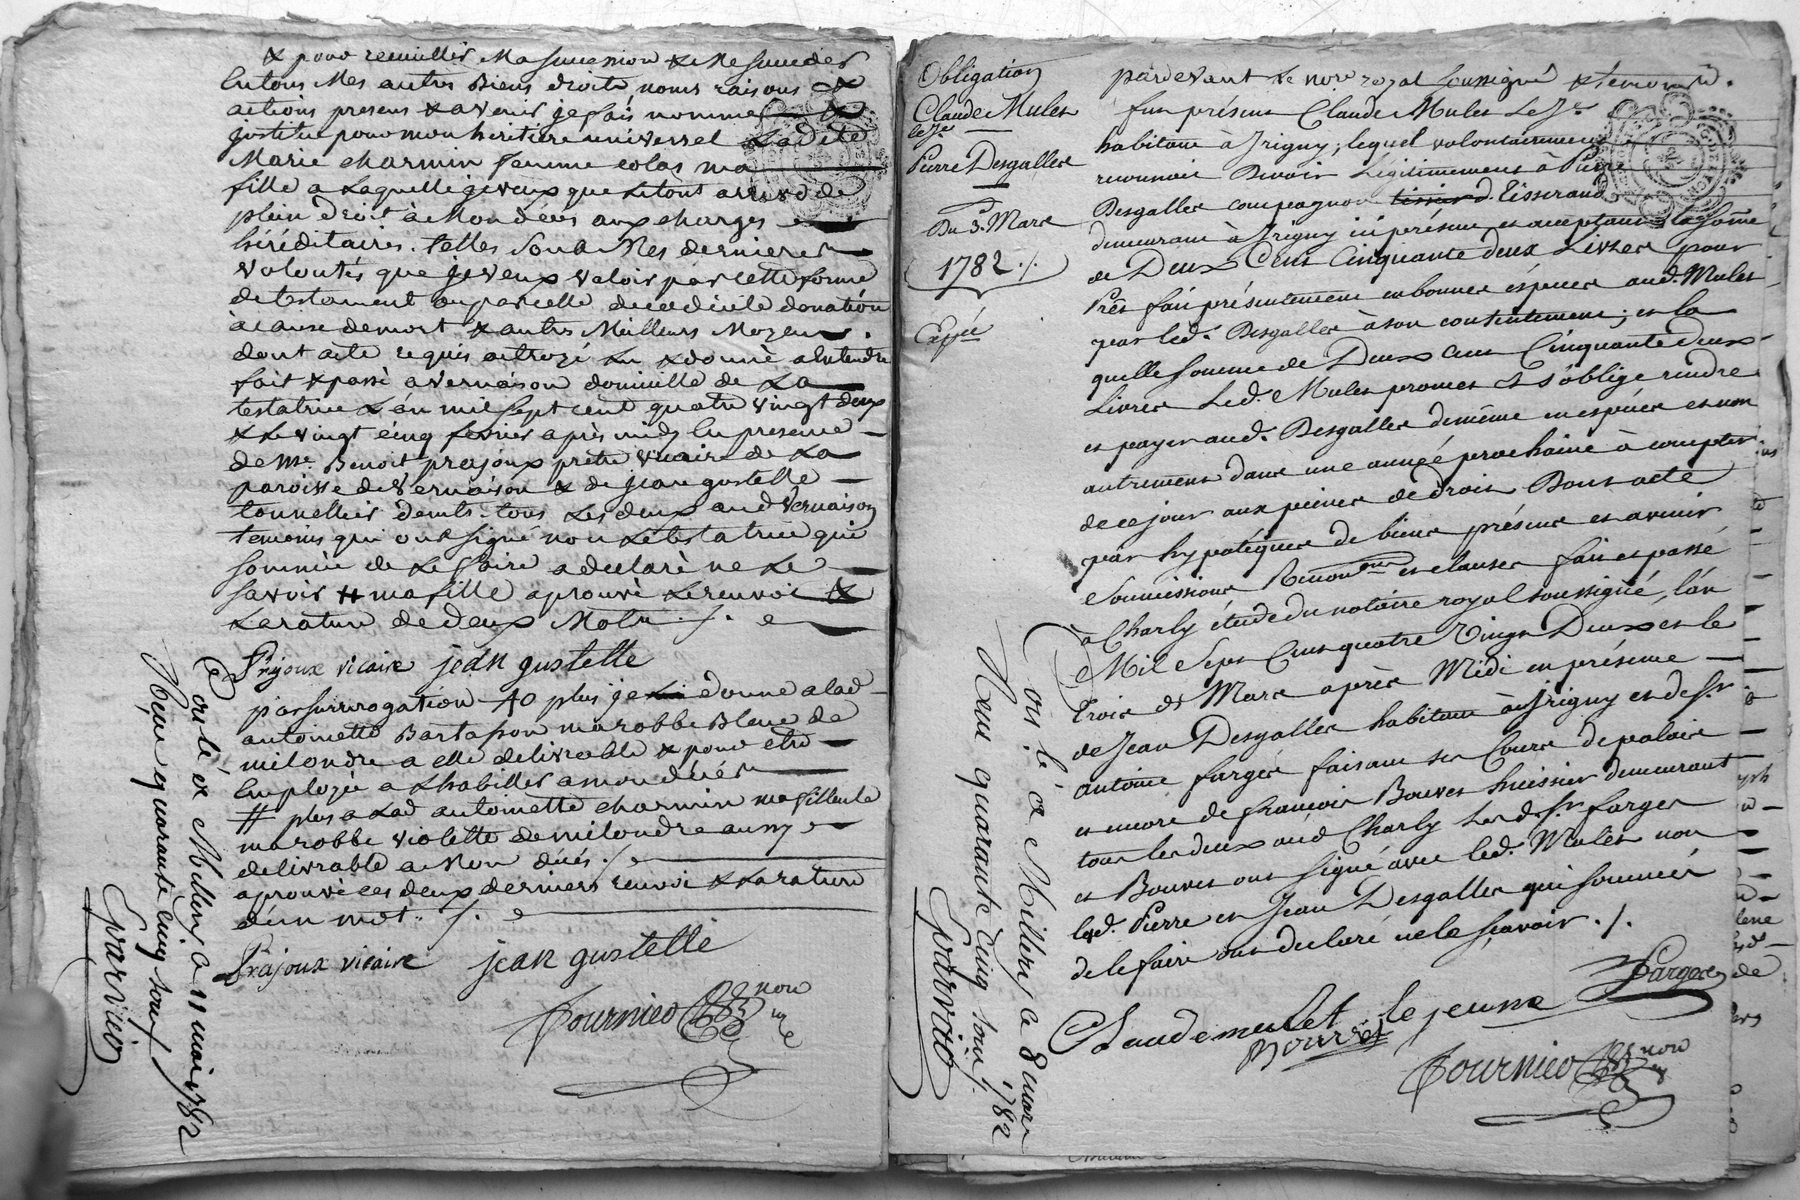 & pour recuillir Ma succession & Me succeder
En tous Mes autres Biens droits noms raisons &
actions presens & avenir je fais nomme &
jnstitue pour mon heritiere universel Ladite
Marie charmin femme colas ma
fille a Laquelle je veux que Le tout arrive de
plein droit à Mon deces aux charges
héréditaires. telles sont Mes dernieres
volontés que je veux valoir par cette forme
de testament ou par celle de codicile donation
à cause de mort & autres Meilleurs Moyens.
dont acte requis octroyé Lu & donné a Entendre
fait & passé a vernaison domicille de La
testatrice L'an mil sept cent quatre vingt deux
& Le vingt cinq fevrier après midy En presence
de Me. Benoit prajoux prêtre vicaire de La
paroisse de Vernaison & de jean gustelle
tonnellier demts. tous Les deux aud Vernaison
temoins qui ont signé non La testatrice qui
sommée de Le faire a declaré ne Le
savoir # ma fille aprouvé Le renvoi &
La rature de deux Mots ./.
Prajoux vicaire jean gustelle
par surrogation &o plus je donne a lad
antoinette Bartasson ma robbe Bleue de
milondre a elle delivrable & pour etre
Employée a L'habiller a mon décés
# plus a Lad antoinette charmin ma filleule
ma robbe violette de milondre aussy
delivrable a Mon décés ./.
aprouvé ces deux derniers renvoi & La rature
d'un mot ./.
Prajoux vicaire jean gustelle
Fournier nore
Controlé à Millery, a 11 mai 1782
Reçu quarante cinq sous /.
Gvarvier
Obligation
Claude Mulet
le Je
Pierre Desgalles
Du 3. Mars
1782 ./.
Expée
pardevant Le nore. royal soussigné & temoins.
fut présent Claude Mulet Le Je
habitant à Jrigny, lequel volontairement
reconnoit Devoir Légitimement à
Desgalles compagnon d. Tisserand
demeurant à Jrigny ici présent et acceptant la somme
de Deux Cent Cinquante deux Livres pour
Prêt fait présentement en bonnes espèces aud. Mulet
par led. Desgalles à son contentement; et la
quelle somme de Deux cent Cinquante deux
Livres Led. Mulet promet et s'oblige rendre
et payer aud. Desgalles de même en espèces et non
autrement dans une année prochaine à compter
de ce jour aux peines de droit Dont acte
par hypotéques de biens présens et avenir
Soumissions Renonons et clauses fait et passé
à Charly étude du notaire royal soussigné, L'an
Mil Sept Cent quatre Vingt Deux et le
Trois de Mars après Midi en présence
de Jean Desgalles habitant à Jrigny et de Sr
antoine farges faisant ses Cours de palais
et encore de francois Bouvet huissier demeurant
tous les deux aud Charly Lesd. Sr. farges
et Bouvet ont signé avec led. Mulet non
lesd. Pierre et Jean Desgalles qui sommés
de le faire ont declaré ne le sçavoir ./.
Farges
Claude mulet le jeune
Bouvet
Fournier nore
Controlé à Millery a 8 mars 1782
Reçu quarante cinq sous /.
Gvarvier